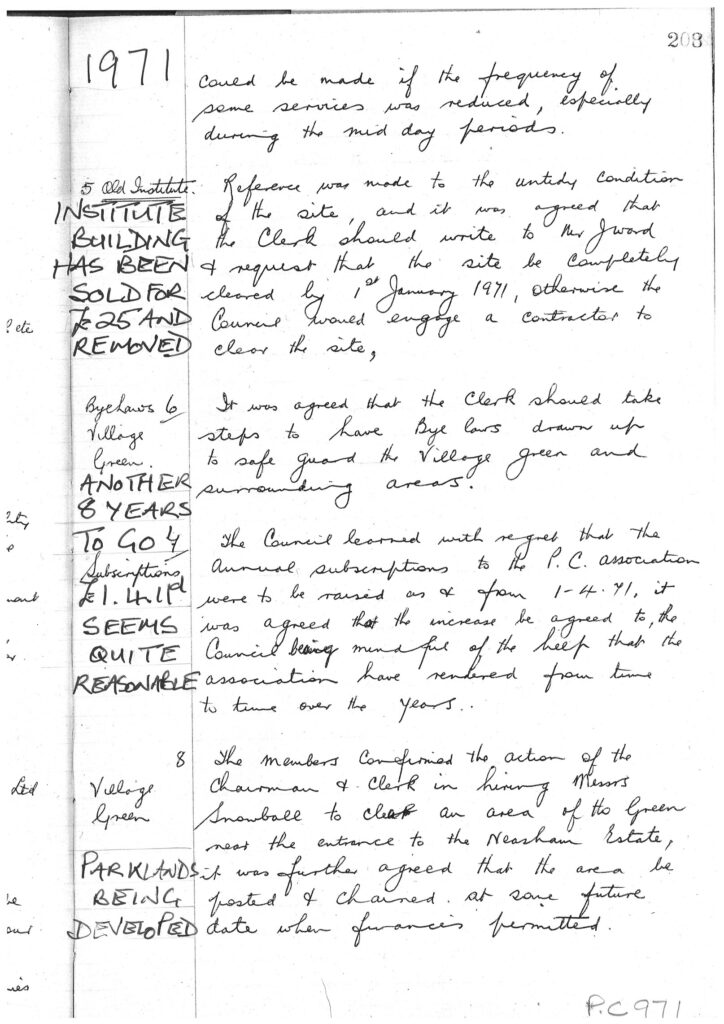 208
1971
could be made if the frequency of
some services was reduced, especially
during the mid day periods.
5 Old Institute.
INSTITUTE
BUILDING
HAS BEEN
SOLD FOR
£25 AND
REMOVED
Reference was made to the untidy condition
of the site, and it was agreed that
the Clerk should write to Mr J Word
& request that the site be completely
cleared by 1st January 1971, otherwise the
Council would engage a contractor to
clear the site,
Bye Laws 6
Village
Green.
ANOTHER
8 YEARS
TO GO
It was agreed that the Clerk should take
steps to have Bye laws drawn up
to safe guard the Village green and
surrounding areas.
7
Subscriptions
£1.4.11d
SEEMS
QUITE
REASONABLE
The Council learned with regret that the
Annual subscriptions to the P.C. association
were to be raised as & from 1-4-71, it
was agreed that the increase be agreed to, the
Council being mindful of the help that the
association have rendered from time
to time over the years..
8
Village
Green
PARKLANDS
BEING
DEVELOPED
The members confirmed the action of the
Chairman & Clerk in hiring Messrs
Snowball to clear an area of the Green
near the entrance to the Neasham Estate,
it was further agreed that the area be
posted & chained at some future
date when finances permitted.
etc
Ltd
P.C 971